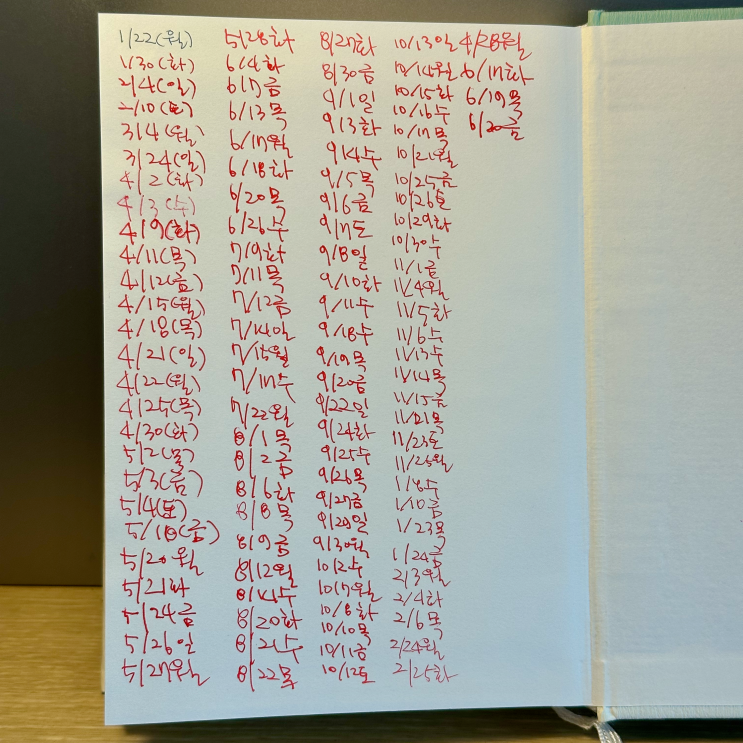 1/22(월)
1/30(화)
2/4(일)
2/10(토)
3/4(월)
3/24(일)
4/2(화)
4/3(수)
4/9(화)
4/11(목)
4/12(금)
4/15(월)
4/18(목)
4/21(일)
4/22(월)
4/25(목)
4/30(화)
5/2(목)
5/3(금)
5/4(토)
5/10(금)
5/20월
5/21화
5/24금
5/26일
5/27월
5/28화
6/4화
6/7금
6/13목
6/17월
6/18화
6/20목
6/26수
7/9화
7/11목
7/12금
7/14일
7/15월
7/17수
7/22월
8/1목
8/2금
8/6화
8/8목
8/9금
8/12월
8/14수
8/20화
8/21수
8/22목
8/27화
8/30금
9/1일
9/3화
9/4수
9/5목
9/6금
9/7토
9/8일
9/10화
9/11수
9/18수
9/19목
9/20금
9/22일
9/24화
9/25수
9/26목
9/27금
9/29일
9/30월
10/2수
10/7월
10/8화
10/10목
10/11금
10/12토
10/13일
10/14월
10/15화
10/16수
10/17목
10/21월
10/25금
10/26토
10/29화
10/30수
11/1금
11/4월
11/5화
11/6수
11/13수
11/14목
11/15금
11/21목
11/23토
11/25월
1/8수
1/10금
1/23목
1/24금
2/3월
2/4화
2/6목
2/24월
2/25화
4/28월
6/17화
6/19목
6/20금